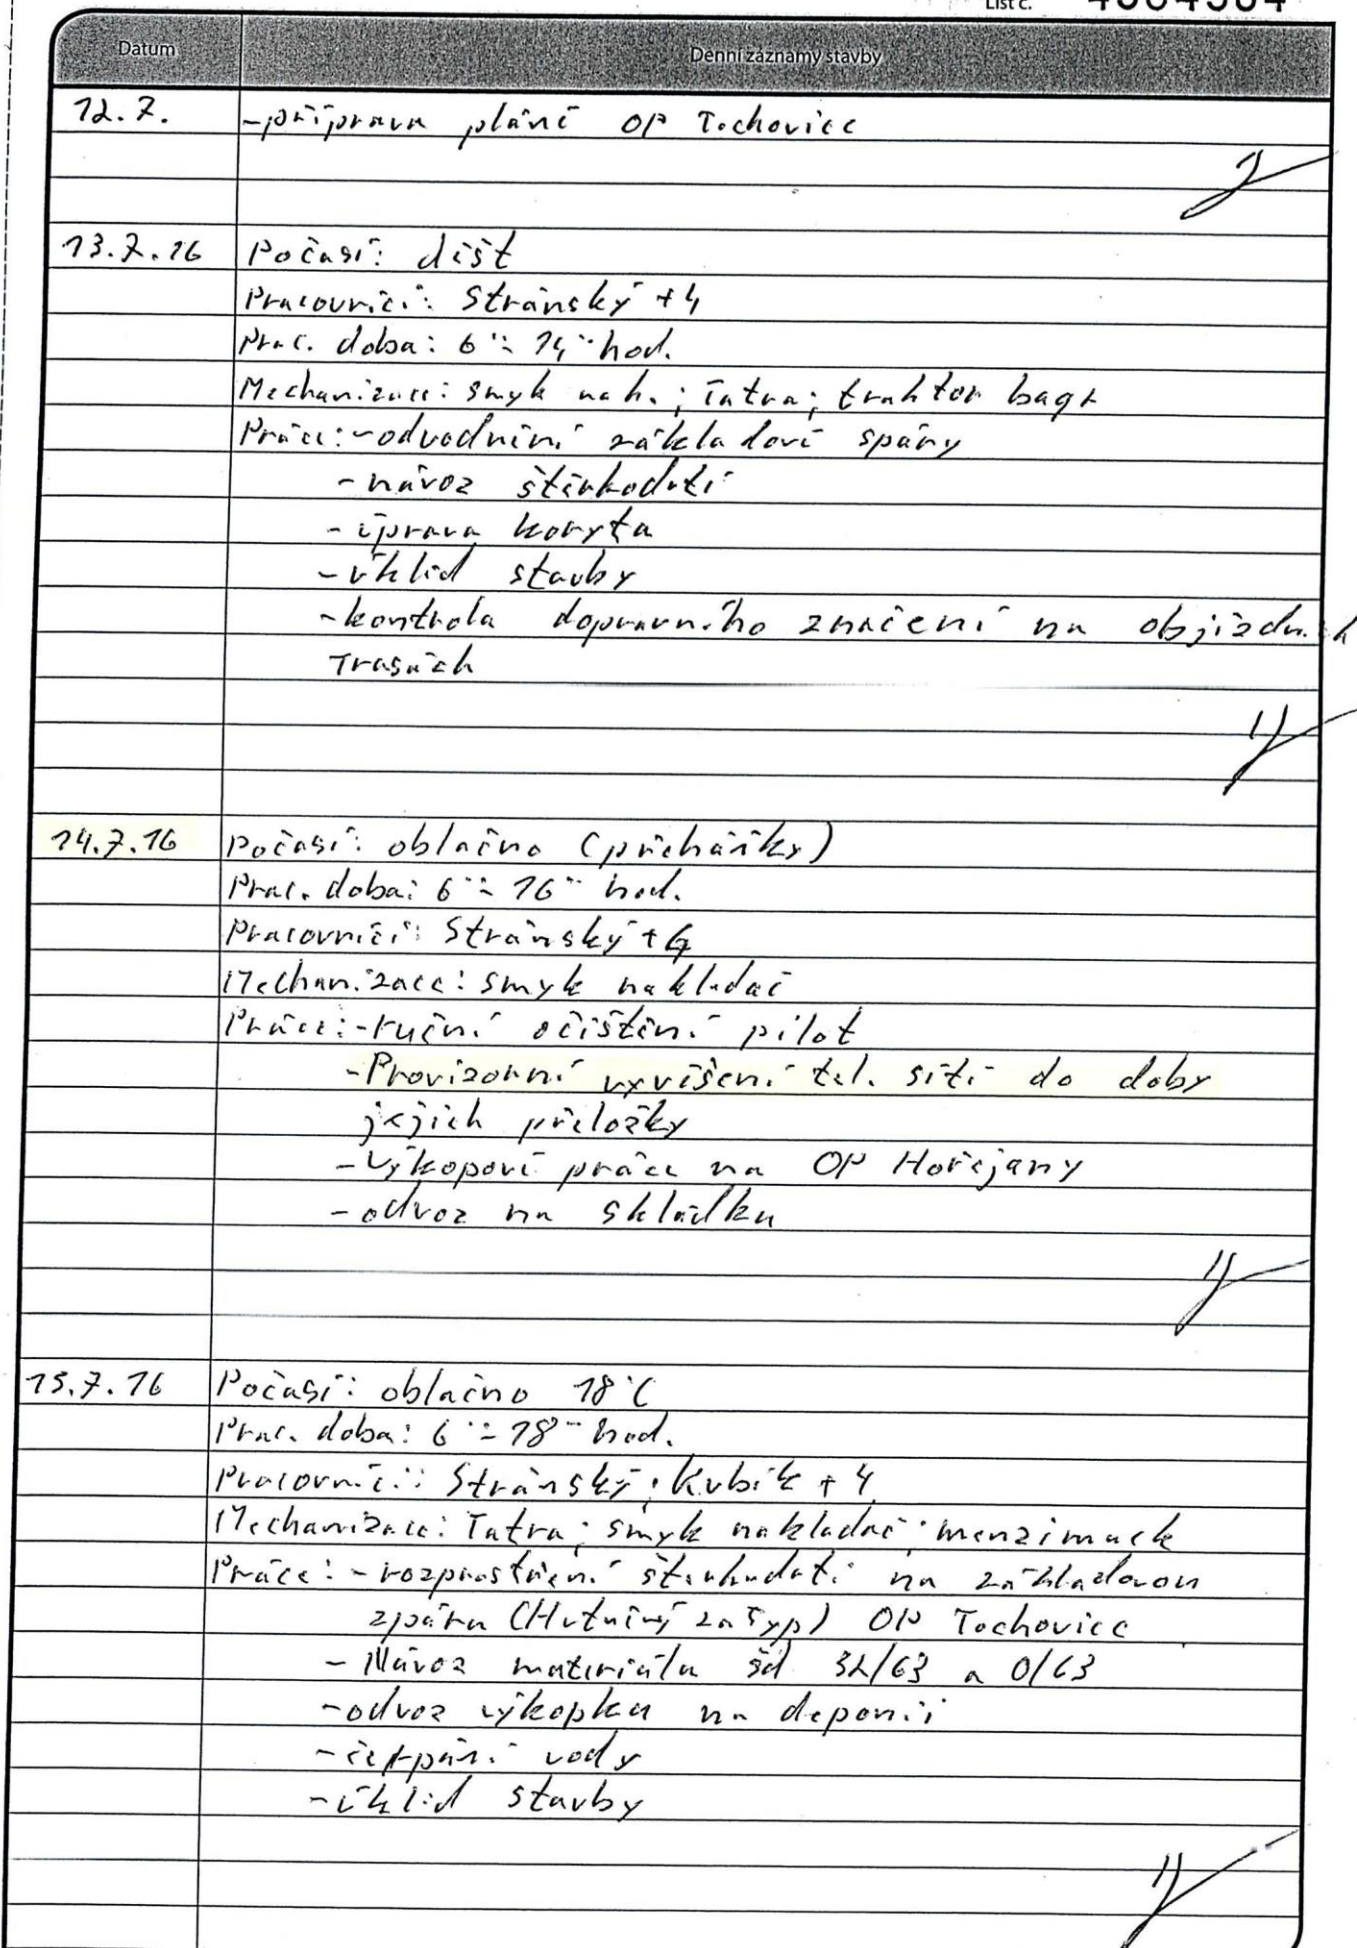 List č.
Datum Denní záznamy stavby
12.7. -příprava pláně OP Tochovice
13.7.16 Počasí: déšť
Pracovníci: Stránský +4
Prac. doba: 6⁰⁰-14⁰⁰ hod.
Mechanizace: smyk nak.; Tatra; traktor bagr
Práce: -odvodnění základové spáry
-návoz štěrkodrti
-úprava koryta
-úklid stavby
-kontrola dopravního značení na objízdných
trasách
14.7.16 Počasí: oblačno (přeháňky)
Prac. doba: 6⁰⁰-16⁰⁰ hod.
Pracovníci: Stránský +4
Mechanizace: smyk nakladač
Práce: -ruční očištění pilot
-Provizorní vyvěšení tel. sítí do doby
jejich přeložky
-Výkopové práce na OP Hořejany
-odvoz na skládku
15.7.16 Počasí: oblačno 18°C
Prac. doba: 6⁰⁰-18⁰⁰ hod.
Pracovníci: Stránský; Kubík + 4
Mechanizace: Tatra; smyk nakladač; menzimuck
Práce: -rozprostření štěrkodrti na základovou
zpáru (Hutněný zásyp) OP Tochovice
- Návoz materiálu šd 32/63 a 0/63
-odvoz výkopku na deponii
-čerpání vody
-úklid stavby